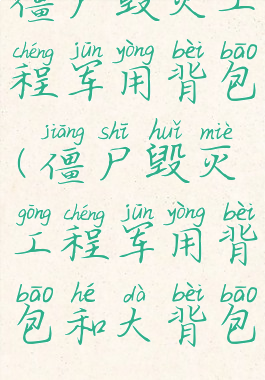 僵尸毁灭工
chéng jūn yòng bèi bāo
程军用背包
jiāng shī huǐ miè
（僵尸毁灭
gōng chéng jūn yòng bèi
工程军用背
bāo hé dà bèi bāo
包和大背包